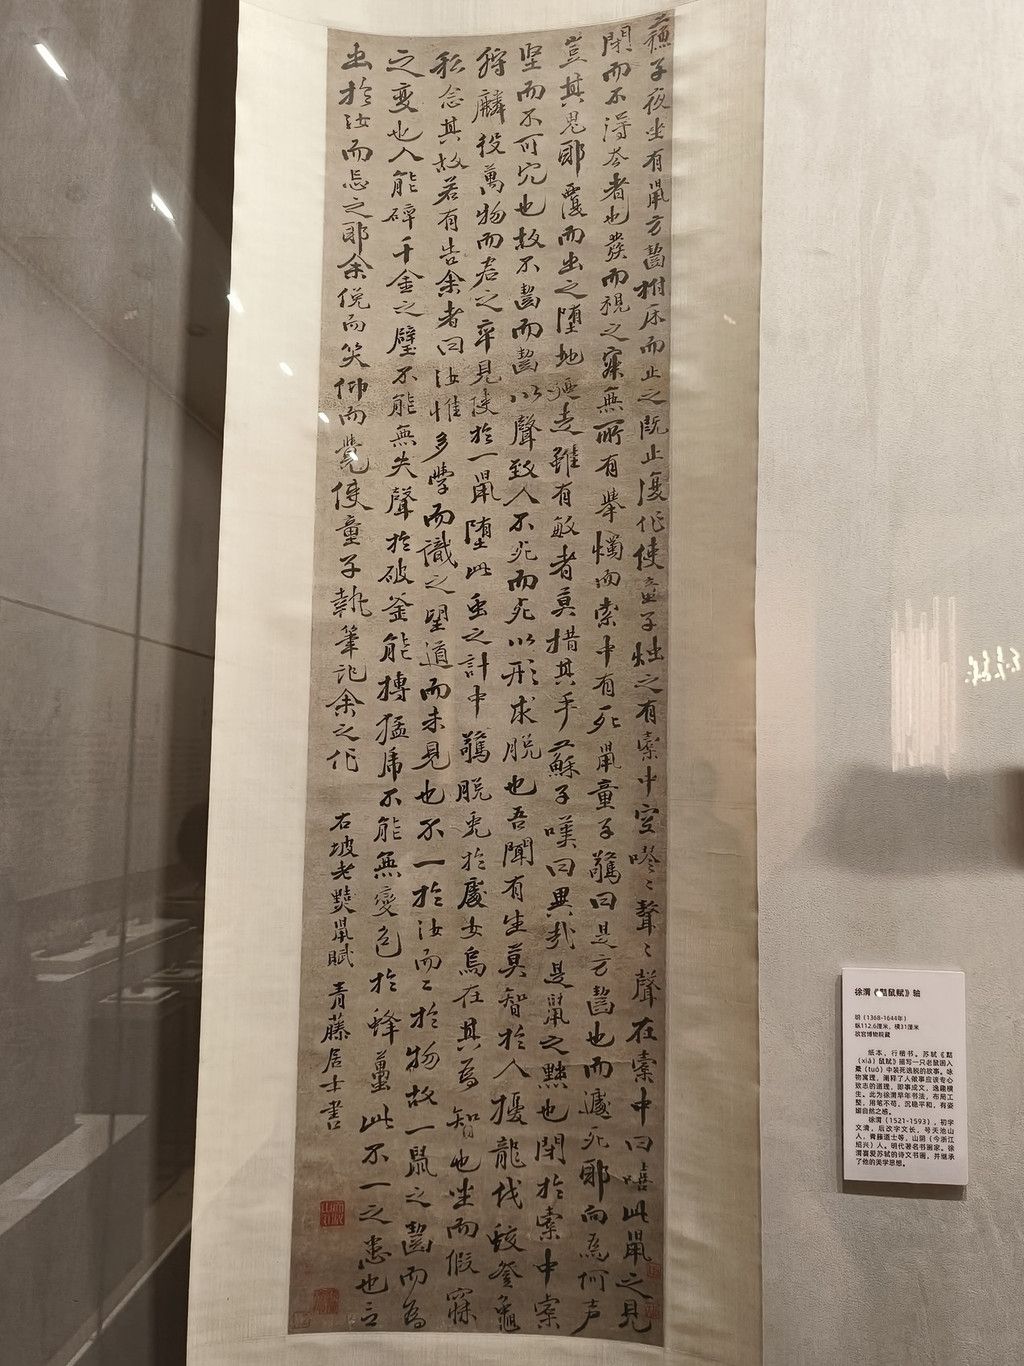 蘇子夜坐有鼠方齧拊床而止之既止復作使童子燭之有橐中空嘐〻聱〻聲在橐中曰嘻此鼠之見
閉而不得去者也發而視之寂無所有舉燭而索中有死鼠童子驚曰是方齧也而遽死耶向為何声
豈其鬼耶覆而出之墮地廼走雖有敏者莫措其手蘇子嘆曰異哉是鼠之黠也閉於橐中橐
堅而不可穴也故不齧而齧以聲致人不死而死以形求脫也吾聞有生莫智於人擾龍伐蛟登龜
狩麟役萬物而君之卒見使於一鼠墮此虫之計中驚脫兎於處女烏在其為智也坐而假寐
私念其故若有告余者曰汝惟多學而識之望道而未見也不一於汝而二於物故一鼠之齧而為
之變也人能碎千金之璧不能無失聲於破釜能搏猛虎不能無變色於蜂蠆此不一之患也言
出於汝而忘之耶余俛而笑仰而覺使童子執筆記余之作
石坡老黠鼠賦 青藤居士書
徐渭《黠鼠赋》轴
明（1368-1644年）
纵112.6厘米，横31厘米
故宫博物院藏
纸本，行楷书。苏轼《黠
（xiá）鼠赋》描写一只老鼠困入
橐（tuó）中装死逃脱的故事。咏
物寓理，阐释了人做事应该专心
致志的道理，即事成文，逸趣横
生。此为徐渭早年书法，布局工
整，用笔不苟，沉稳平和，有姿
媚自然之感。
徐渭（1521-1593），初字
文清，后改字文长，号天池山
人，青藤道士等，山阴（今浙江
绍兴）人。明代著名书画家。徐
渭喜爱苏轼的诗文书画，并继承
了他的美学思想。